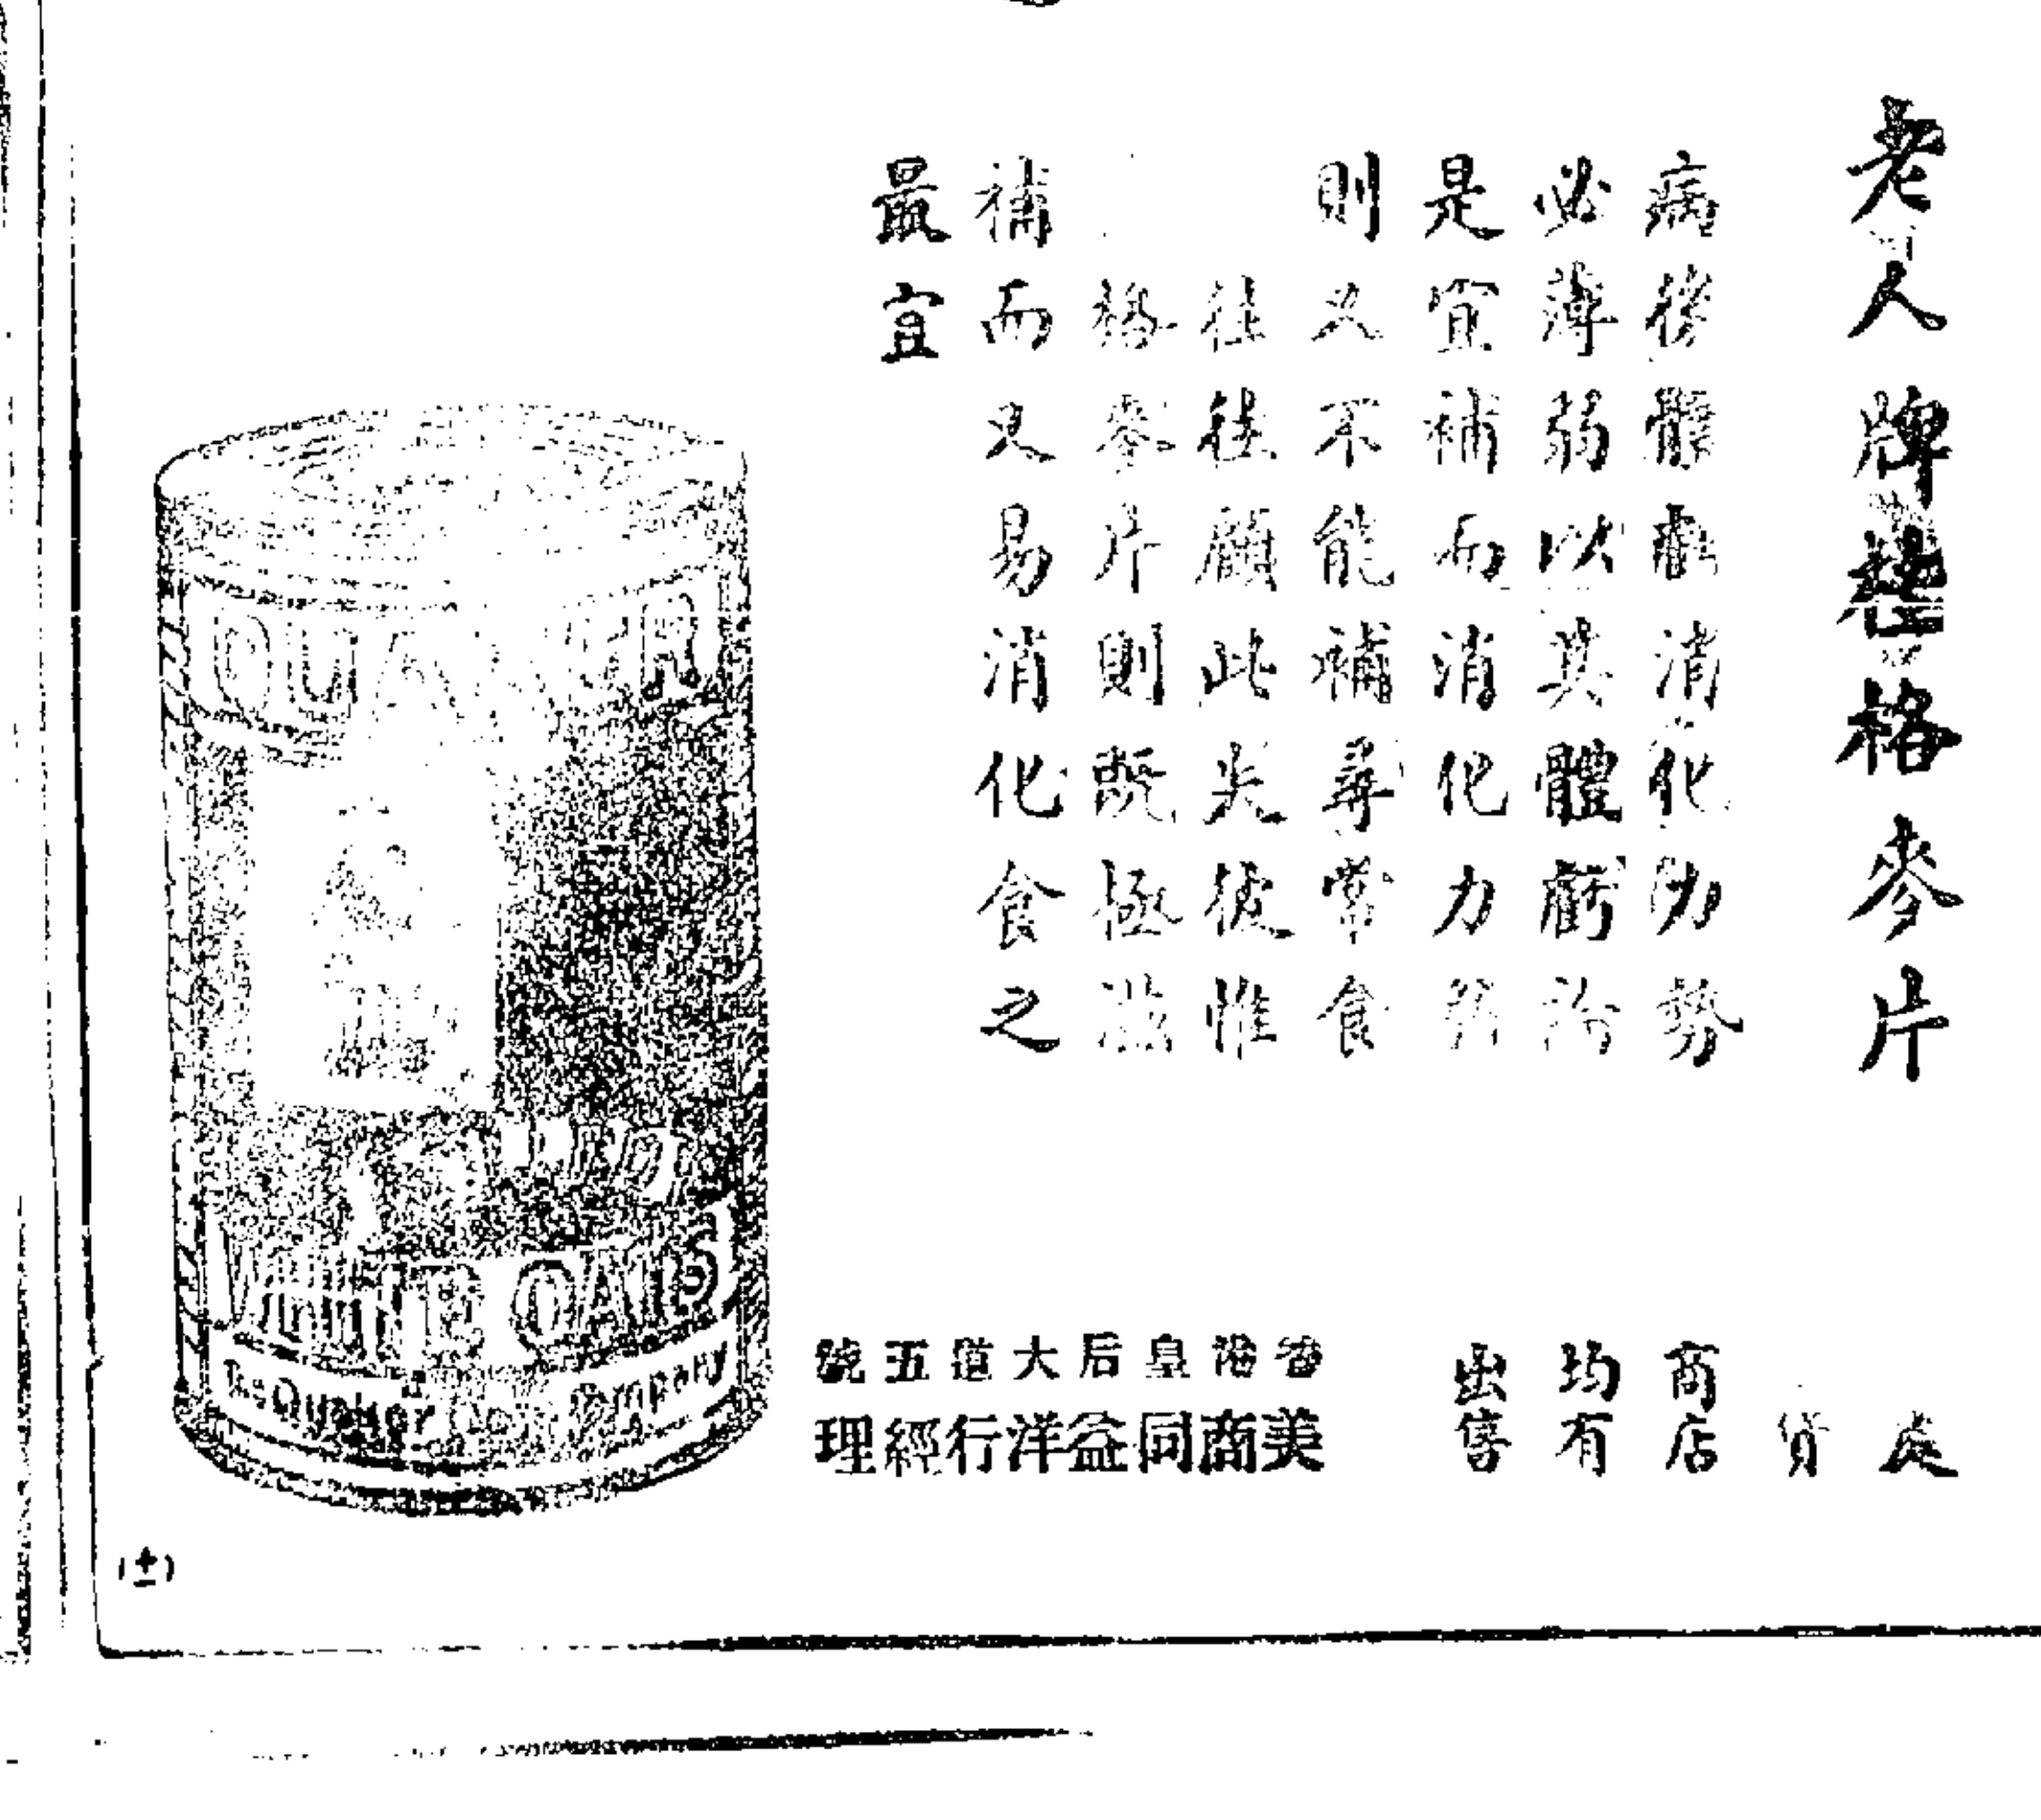 老人牌桂格麥片
病後體虧消化力勢
必薄弱以其體虧
是宜補而消化力
則又不能補尋常食
往往顧此失彼惟
格麥片則既極滋
補而又易消化食之
最宜
處
貨
商店
均有
出售
香港皇后大道五號
美商同益洋行經理
QUAKER
WHITE OATS
The Quaker Oats Company
(十一)